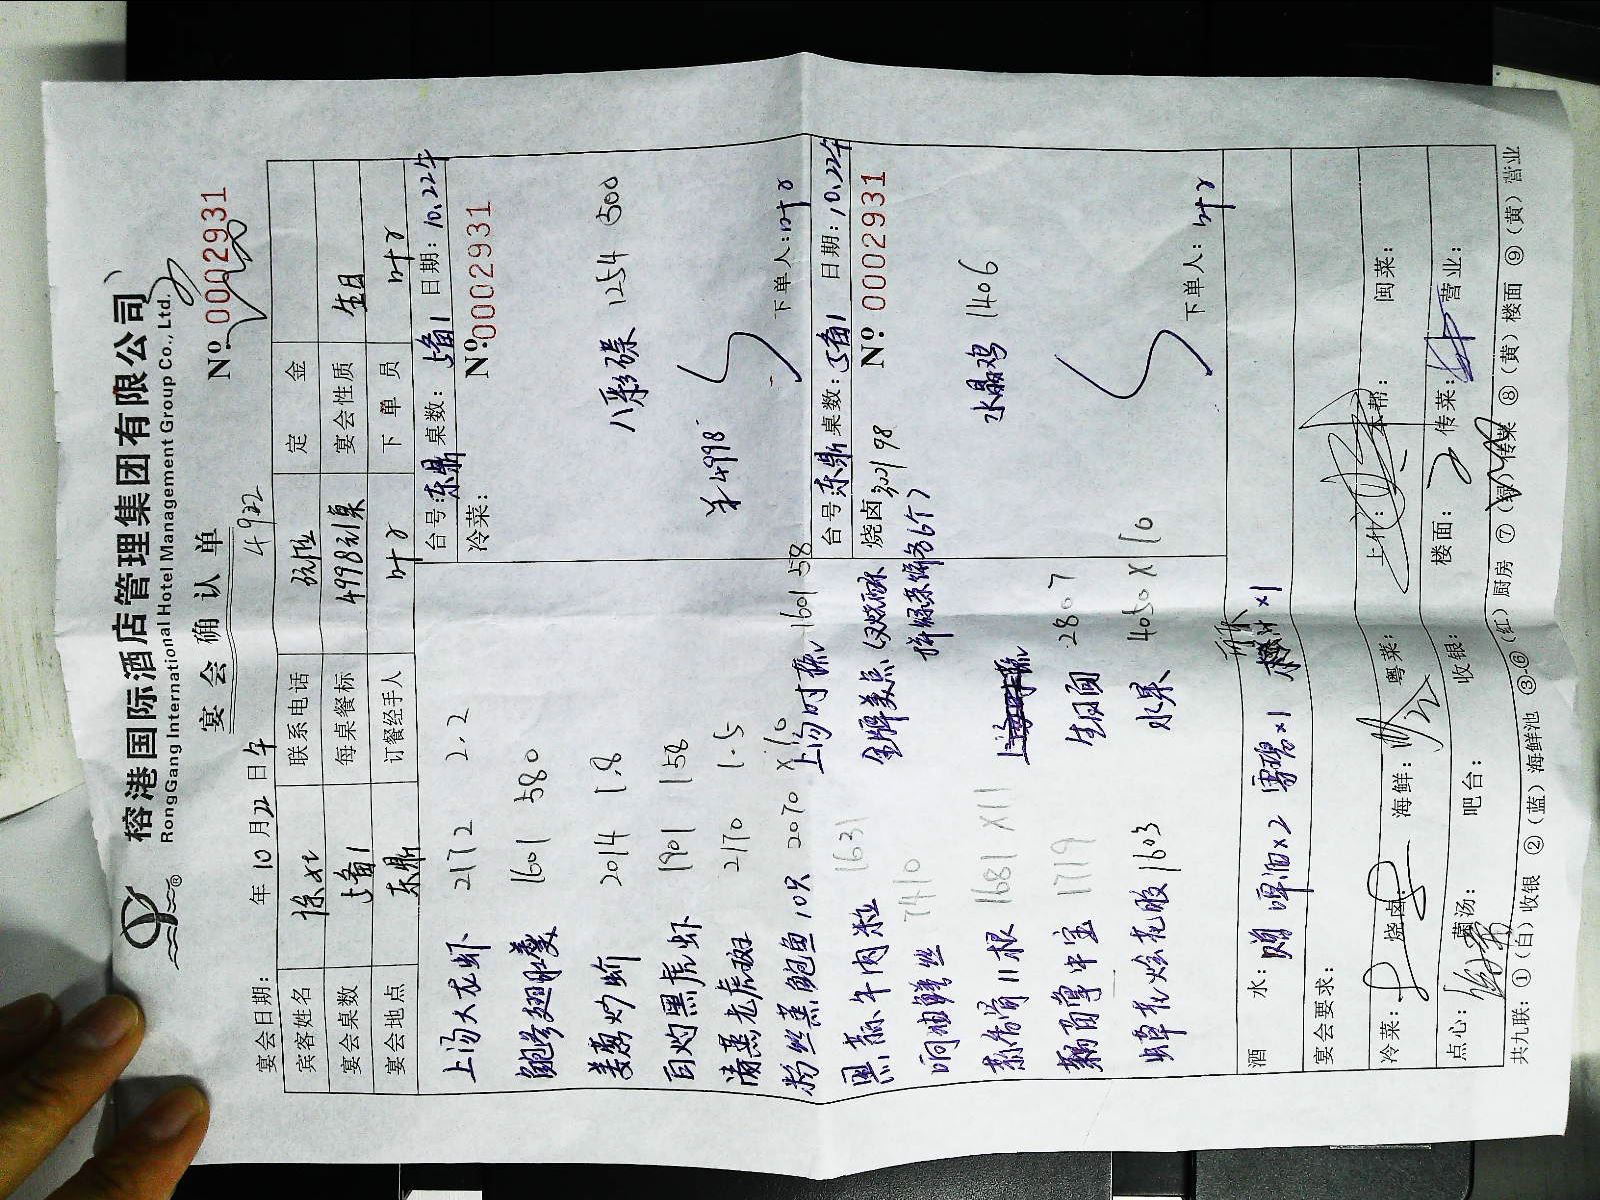 榕港国际酒店管理集团有限公司
RongGang International Hotel Management Group Co., Ltd.
宴会确认单
4922
№ 0002931
宴会日期： 年 10 月 22 日 午
宾客姓名 联系电话 定金
宴会桌数 1 每桌餐标 4998 宴会性质 生日
宴会地点 东鼎 订餐经手人 叶 下单员 叶
上汤大龙虾 2172 2.2
鲍参翅肚羹 1601 580
姜葱炒蚧 2014 1.8
白灼黑虎虾 1901 158
清蒸老虎斑 2170 1.5
粉丝蒸鲍鱼10只 2070 x10
黑蒜牛肉粒 1631
响油鳝丝 7410
蒜香骨11根 1681 X11
1719
1603
上汤时蔬 1601 58
生日面 2807
水果 4050 X 10
台号：东鼎 桌数： 1 日期：10.22午
冷菜：
№ 0002931
八彩碟 1254 500
羊4998
下单人：叶
台号 东鼎 桌数： 1 日期：10.22午
烧卤 98
№ 0002931
水晶鸡 1406
下单人：叶
酒水： 赠 啤酒x2 雪碧x1 x1
宴会要求：
冷菜： 烧卤： 海鲜： 粤菜： 上什： 本帮： 闽菜：
点心： 羹汤： 吧台： 收银： 楼面： 传菜： 营业：
共九联：①（白）收银 ②（蓝）海鲜池 ③-⑥（红）厨房 ⑦（绿）传菜 ⑧（黄）楼面 ⑨（黄）营业